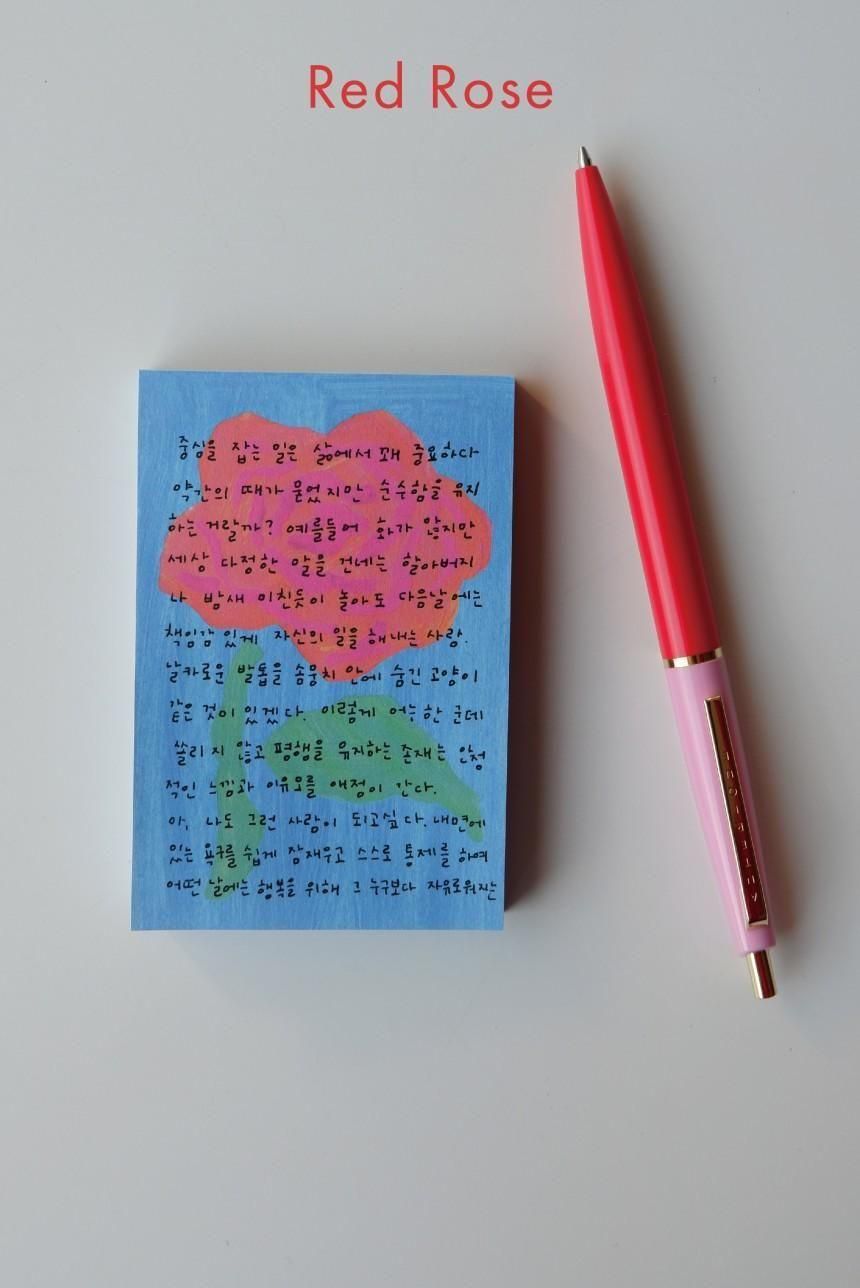 Red Rose
중심을 잡는 일은 삶에서 꽤 중요하다
약간의 때가 묻었지만 순수함을 유지
하는 거랄까? 예를들어 화가 않지만
세상 다정한 말을 건네는 할아버지
나 밤새 미친듯이 놀아도 다음날에는
책임감 있게 자신의 일을 해내는 사람.
날카로운 발톱을 솜뭉치 안에 숨긴 고양이
같은 것이 있겠다. 이렇게 어느 한 군데
쏠리지 않고 평행을 유지하는 존재는 안정
적인 느낌과 이유모를 애정이 간다.
아, 나도 그런 사람이 되고싶다. 내면에
있는 욕구를 쉽게 잠재우고 스스로 통제를 하며
어떤 날에는 행복을 위해 그 누구보다 자유로워지는
ANTERIQUE